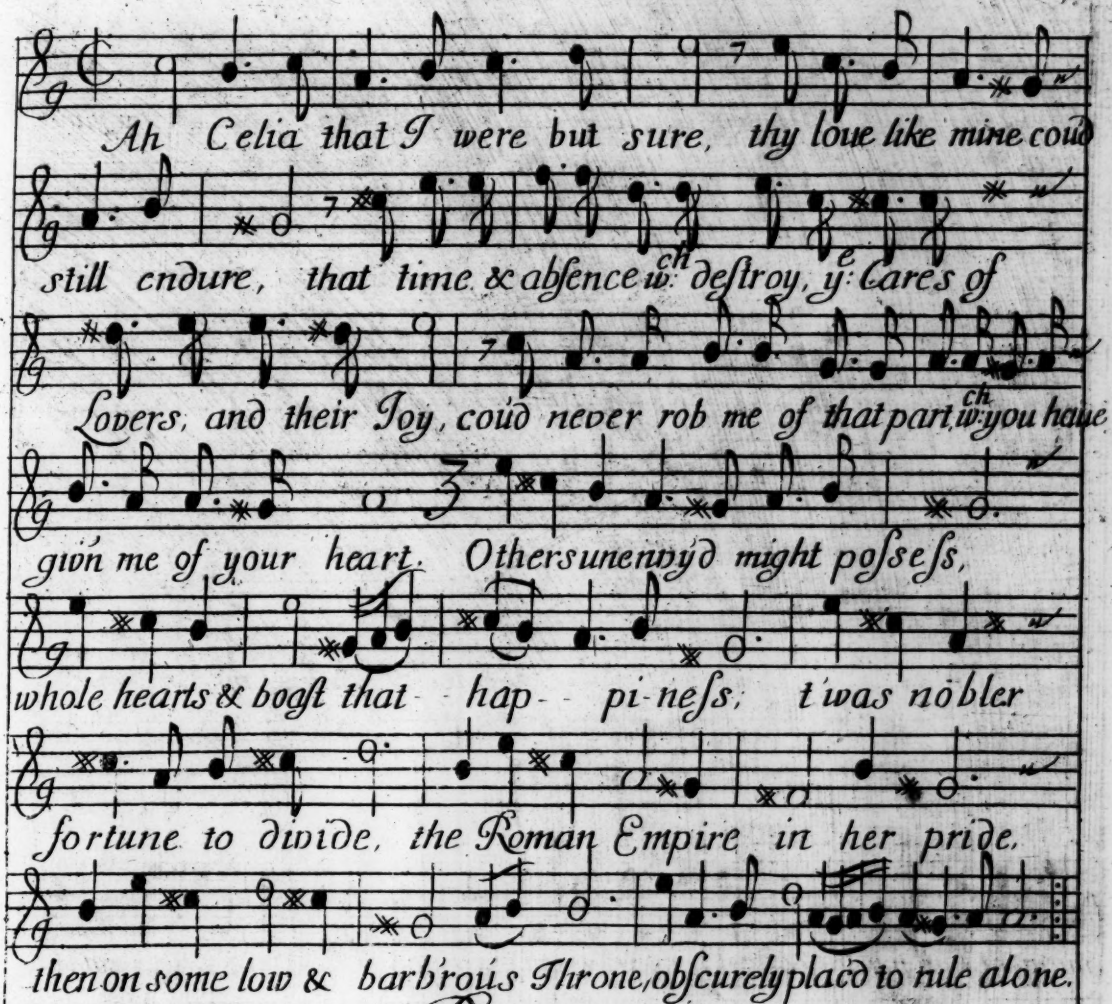 Ah Celia that I were but sure, thy loue like mine coud
still endure, that time & abſence w:ch deſtroy, y:e Cares of
Lovers, and their Joy, coúd never rob me of that part, w:ch you haue
giv'n me of your heart. Others unenvy'd might poſseſs,
whole hearts & boaſt that - - hap - - pi-neſs, t'was nobler
fortune to divide, the Roman Empire in her pride,
then on some low & barb'roús Throne, obſcurely plac'd to rule alone.